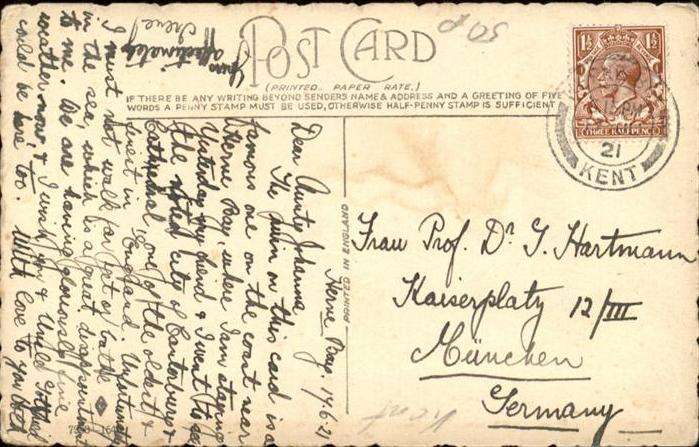 POST CARD
(PRINTED PAPER RATE.)
IF THERE BE ANY WRITING BEYOND SENDERS NAME & ADDRESS AND A GREETING OF FIVE
WORDS A PENNY STAMP MUST BE USED, OTHERWISE HALF-PENNY STAMP IS SUFFICIENT
1½ 1½
THREE HALFPENCE
21
KENT
PRINTED IN ENGLAND
Herne Bay. 17.6.21
Dear Aunty Johanna
The on this card is a
famous one on the coast near
Herne Bay, where I am staying
Yesterday my friend & I went to see
the city of Canterbury &
Cathedral, one of the oldest &
finest in England. Unfortunately
I must not walk far yet or bathe
in the sea, which is a great disappointment
to me. We are having gloriously fine
weather now, & I wish you & Uncle
could be here, too. With love to you
Your
affectionate
Irene
Frau Prof. Dr J. Hartmann
Kaiserplatz 12/III
München
Germany
Kent